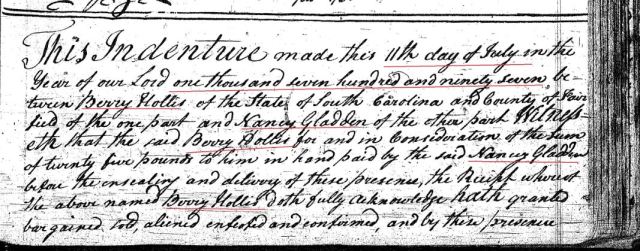 This Indenture made this 11th day of July in the
Year of our Lord one thousand and seven hundred and ninety seven be-
tween Berry Hollis of the State of South Carolina and County of Fair
field of the one part and Nancy Gladden of the other part Witness-
eth that the said Berry Hollis for and in Consideration of the Sum
of twenty five pounds to him in hand paid by the said Nancy Gladden
before the ensealing and delivery of these presence, the Receipt whereof
the above named Berry Hollis doth fully acknowledge hath granted
bargained sold, aliened enfeofed and conformed, and by these presence